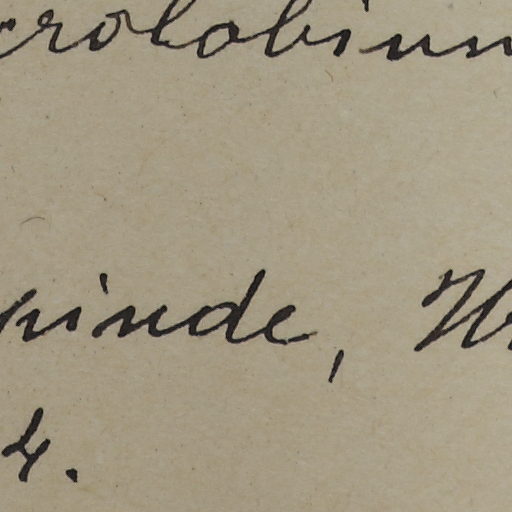 crolobium
pinde,
4.